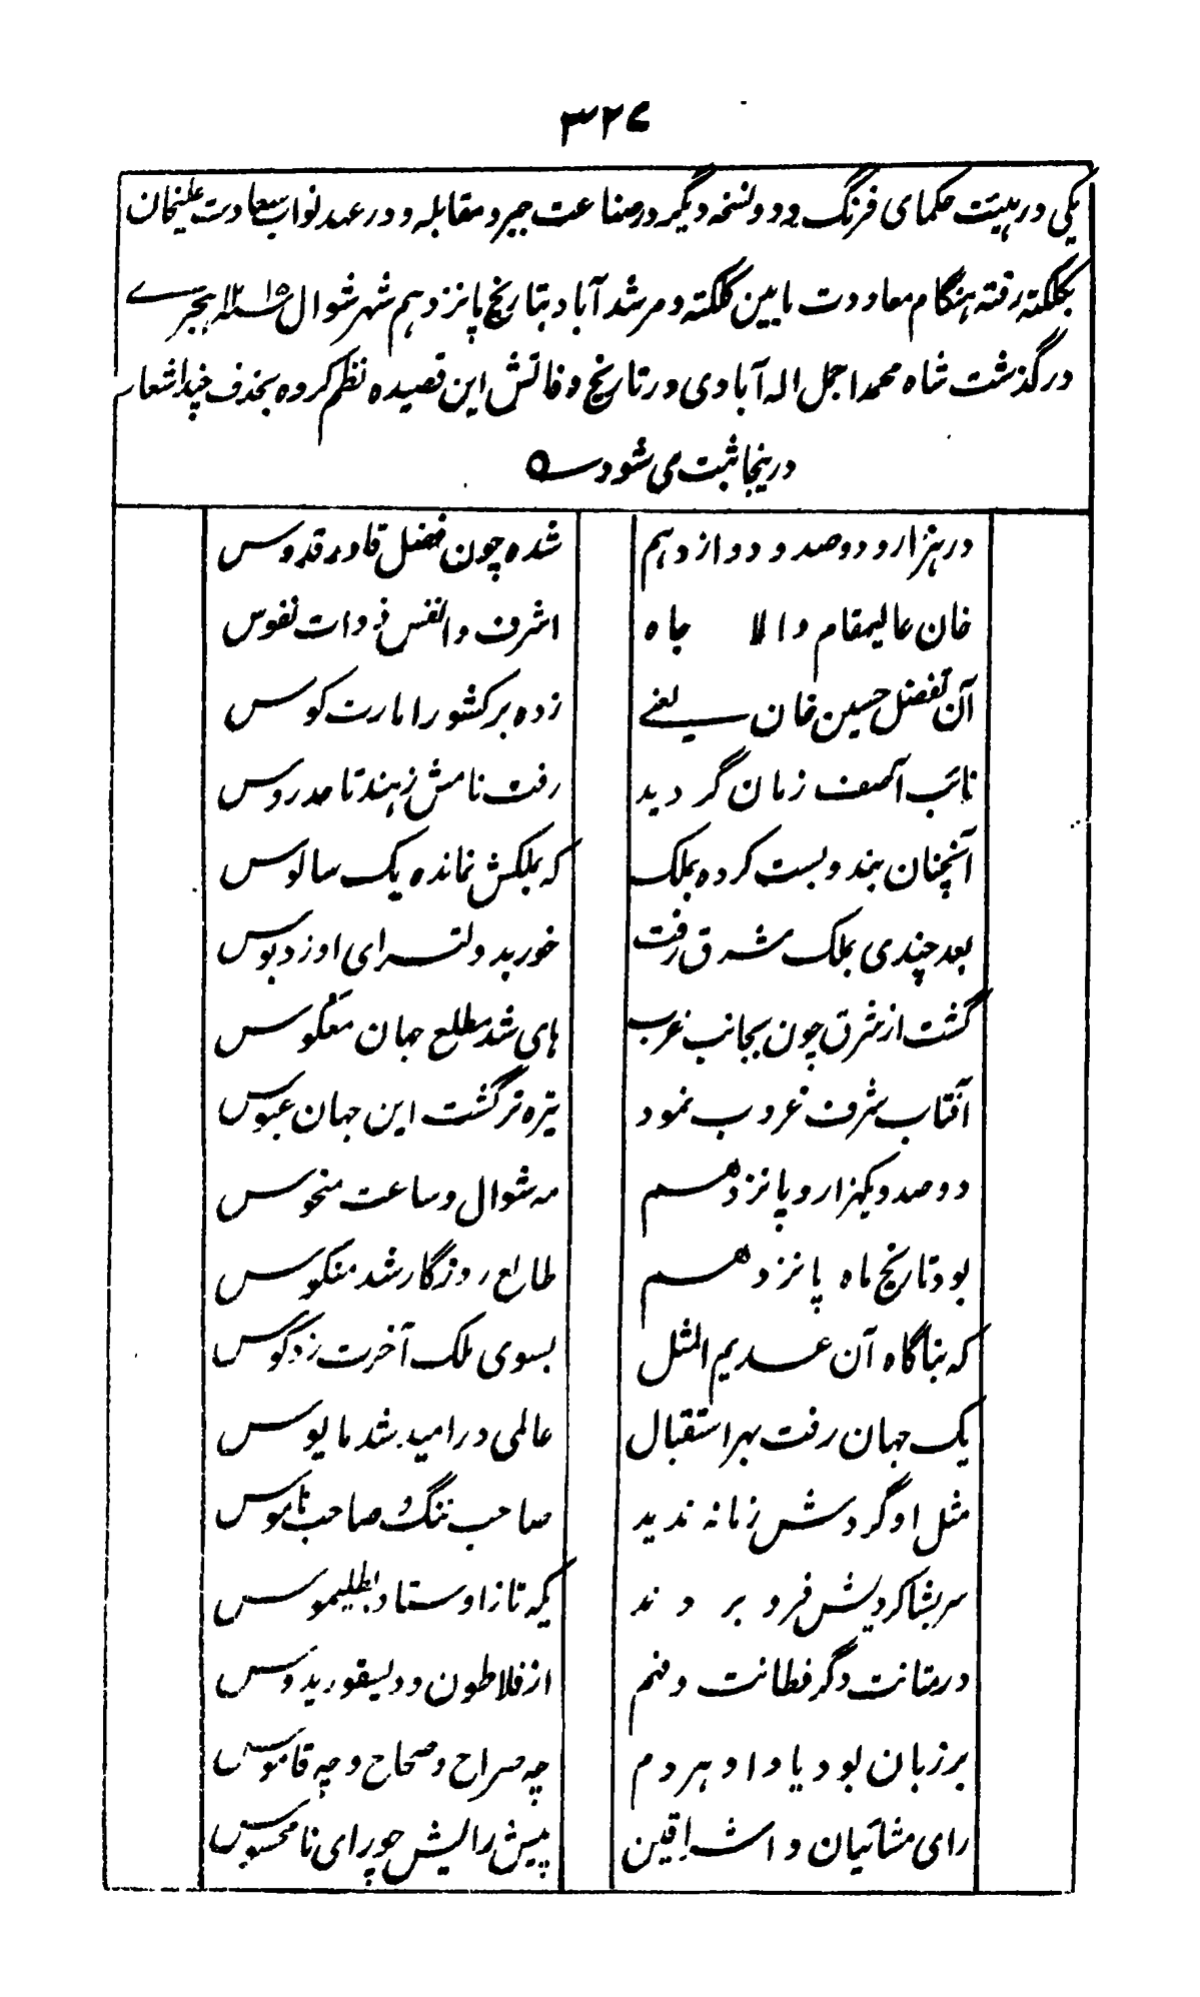 ۳۲۷
یکی در هیئت حکمای فرنگ و دو نسخه دیگر در صناعت جبر و مقابله و در عهد نواب سعادت علیخان
بکلکته رفته هنگام معاودت مابین کلکته و مرشد آباد بتاریخ پانزدهم شهر شوال ۱۲۱۵سنه هجرے
در گذشت شاه محمد اجمل اله آبادی در تاریخ وفاتش این قصیده نظم کرده بحذف چند اشعار
درینجا ثبت می شود ۵
در هزار و دو صد و دوازدهم شده چون فضل قادر قدوس
خان عالیمقام والا جاه اشرف و انفس ذوات نفوس
آن تفضل حسین خان یعنے زده بر کشور امارت کوس
نائب آصف زمان گردید رفت نامش ز هند تا مد روس
آنچنان بند و بست کرده بملک که بملکش نمانده یک سالوس
بعد چندی بملک شرق رفت خور بد ولتسرای او زد بوس
گشت از شرق چون بجانب غرب های شد مطلع جهان معکوس
آفتاب شرف غروب نمود تیره تر گشت این جهان عبوس
دو صد و یکهزار و پانزدهم مه شوال و ساعت منحوس
بود تاریخ ماه پانزدهم طالع روزگار شد منکوس
که بناگاه آن عدیم المثل بسوی ملک آخرت زد کوس
یک جهان رفت بهر استقبال عالمی در امید شد مایوس
مثل او گردش زمانه ندید صاحب ننگ و صاحب ناموس
سر بشاکردیش فرو بردند یکه تاز اوستاد بطلیموس
در متانت دگر فطانت و فهم از فلاطون و دیسقوریدوس
بر زبان بود یاد او هر دم چه صراح و صحاح و چه قاموس
رای مشائیان و اشراقین پیش رایش چو رای نا محسوس